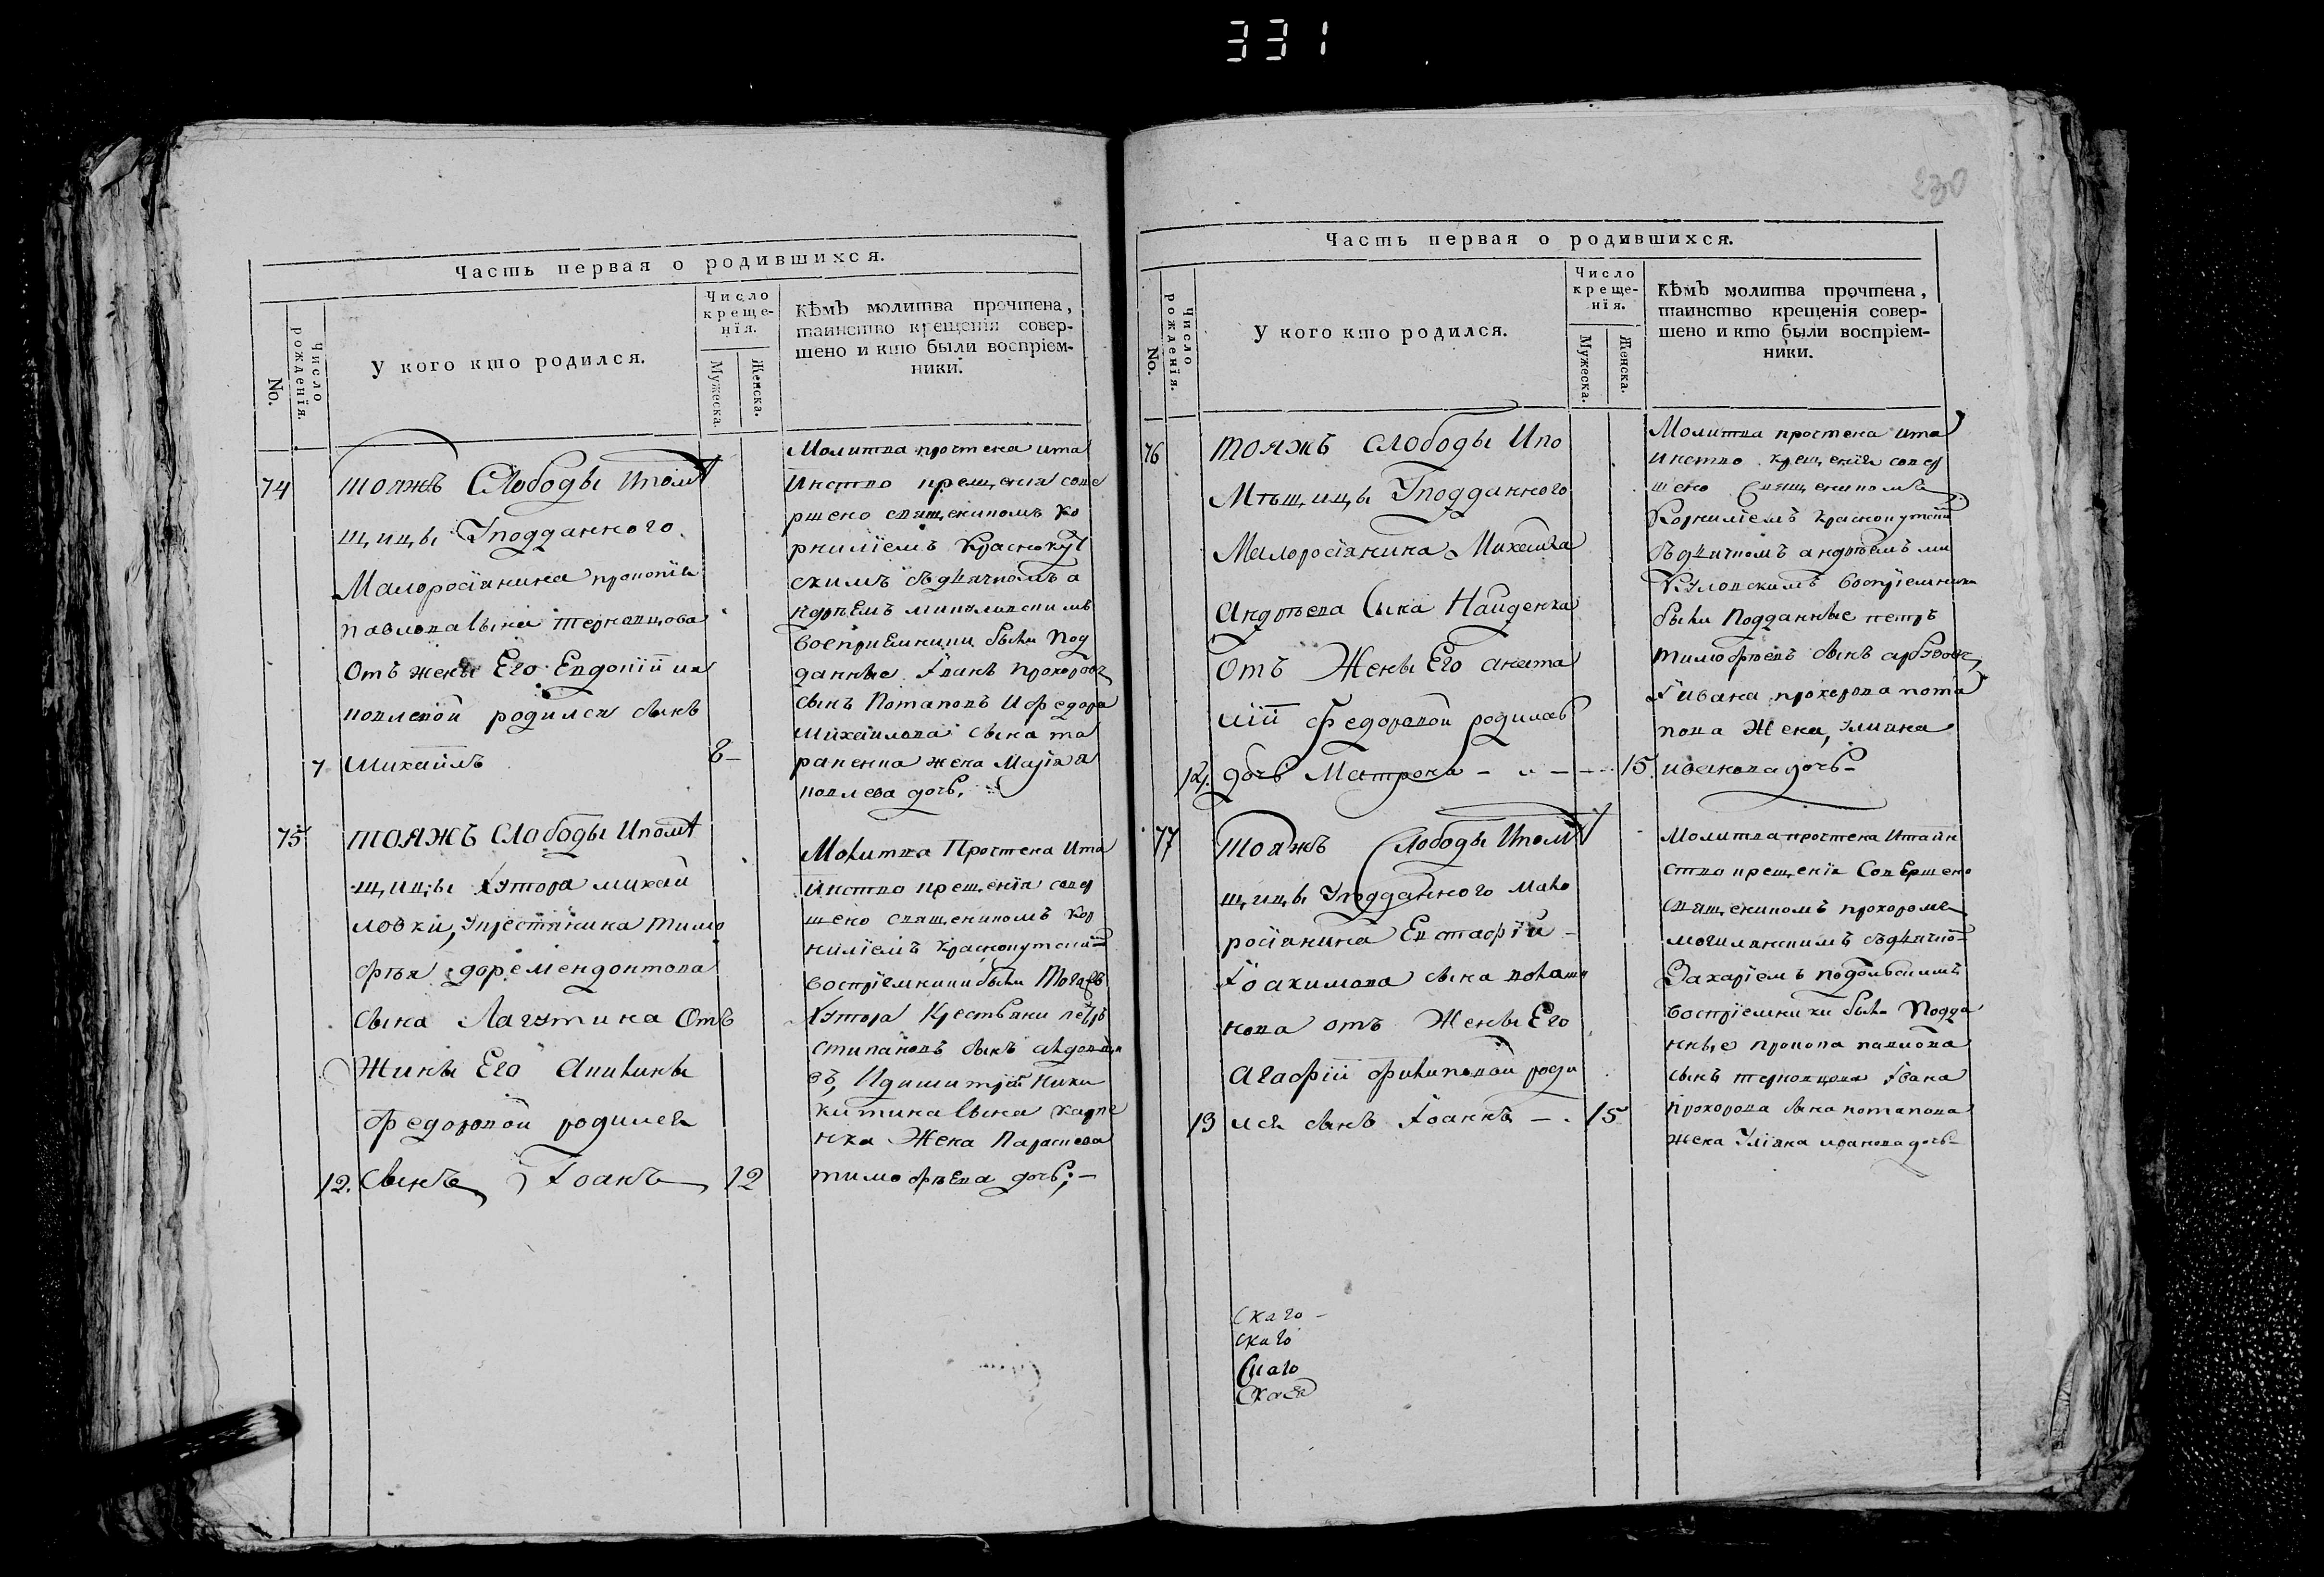 331
230
Часть первая о родившихся.
No.
Число рожденїя.
У кого кто родился.
Число
креще-
нїя.
Мужеска.
Женска.
Кѣмъ молитва прочтена,
таинство крещенія совер-
шено и кто были воспріем-
ники.
74
тояжъ Слободы Ипомѣ
щицы Уподданного
Малоросіянина
павлова сына
Отъ жены Его Евдокіи
родился сынъ
7
Михаилъ
8
Молитва прочтена ита
инство крещенія сове
ршено священикомъ Ко
рниліемъ Краснокут
скимъ сьдячкомъ а
ндреемъ
восприемники были под
данные Іванъ прохоровъ
сынъ Потаповъ Ифедора
Михаилова сына та
раненка жена Марія я
ковлева дочь,
75
тояжъ Слободы Ипомѣ
щицы Хутора михай
ловки, Укрестянина тимо
фѣя
сына Лагутина Отъ
Жины Его Акилины
федоровой родился
12.
сынъ Іоанъ
12
Молитва Прочтена Ита
инство крещенія совер
шено священикомъ Кор
ниліемъ Краснокутскимъ
воспріемники были Тогожъ
Хутора Крестьяни петръ
стипановъ сынъ
Идимитрія Ники
китина сына карпе
нка Жена Параскева
тимофѣева дочь; —
Часть первая о родившихся.
No.
Число рожденїя.
У кого кто родился.
Число
креще-
нїя.
Мужеска.
Женска.
Кѣмъ молитва прочтена,
таинство крещенія совер-
шено и кто были воспріем-
ники.
76
тояжъ слободы Ипо
Мѣщицы Уподданного
Малоросіянина Михаила
Андрѣева Сына Найденка
Отъ Жены Его анаста
сіи федоровой родилась
12.
дочь Матрона
15
Молитва прочтена ита
инство крещенія совер
шено священикомъ
Корниліемъ Краснокутскимъ
Сьдячкомъ андрѣемъ
воспріемники
были Подданные петръ
тимофѣевъ сынъ
Ивана прохорова пота
пова Жена, Улияна
иванова дочь —
77
тояжъ Слободы Ипомѣ
щицы Уподданного мало
росіянина Евстафія
Іоакимова сына
отъ Жены Его
Агафіи филиповой роди
13
лся сынъ Іоаннъ
15
Молитва прочтена Итаин
ство крещенія Совершено
священикомъ прохоромъ
могилянскимъ сьдячко
Захаріемъ подольскимъ
воспріемники были Подда
нные прокопа павлова
сынъ Івана
прохорова сына потапова
жена Уліяна иванова дочь —
скаго —
скаго
Скаго